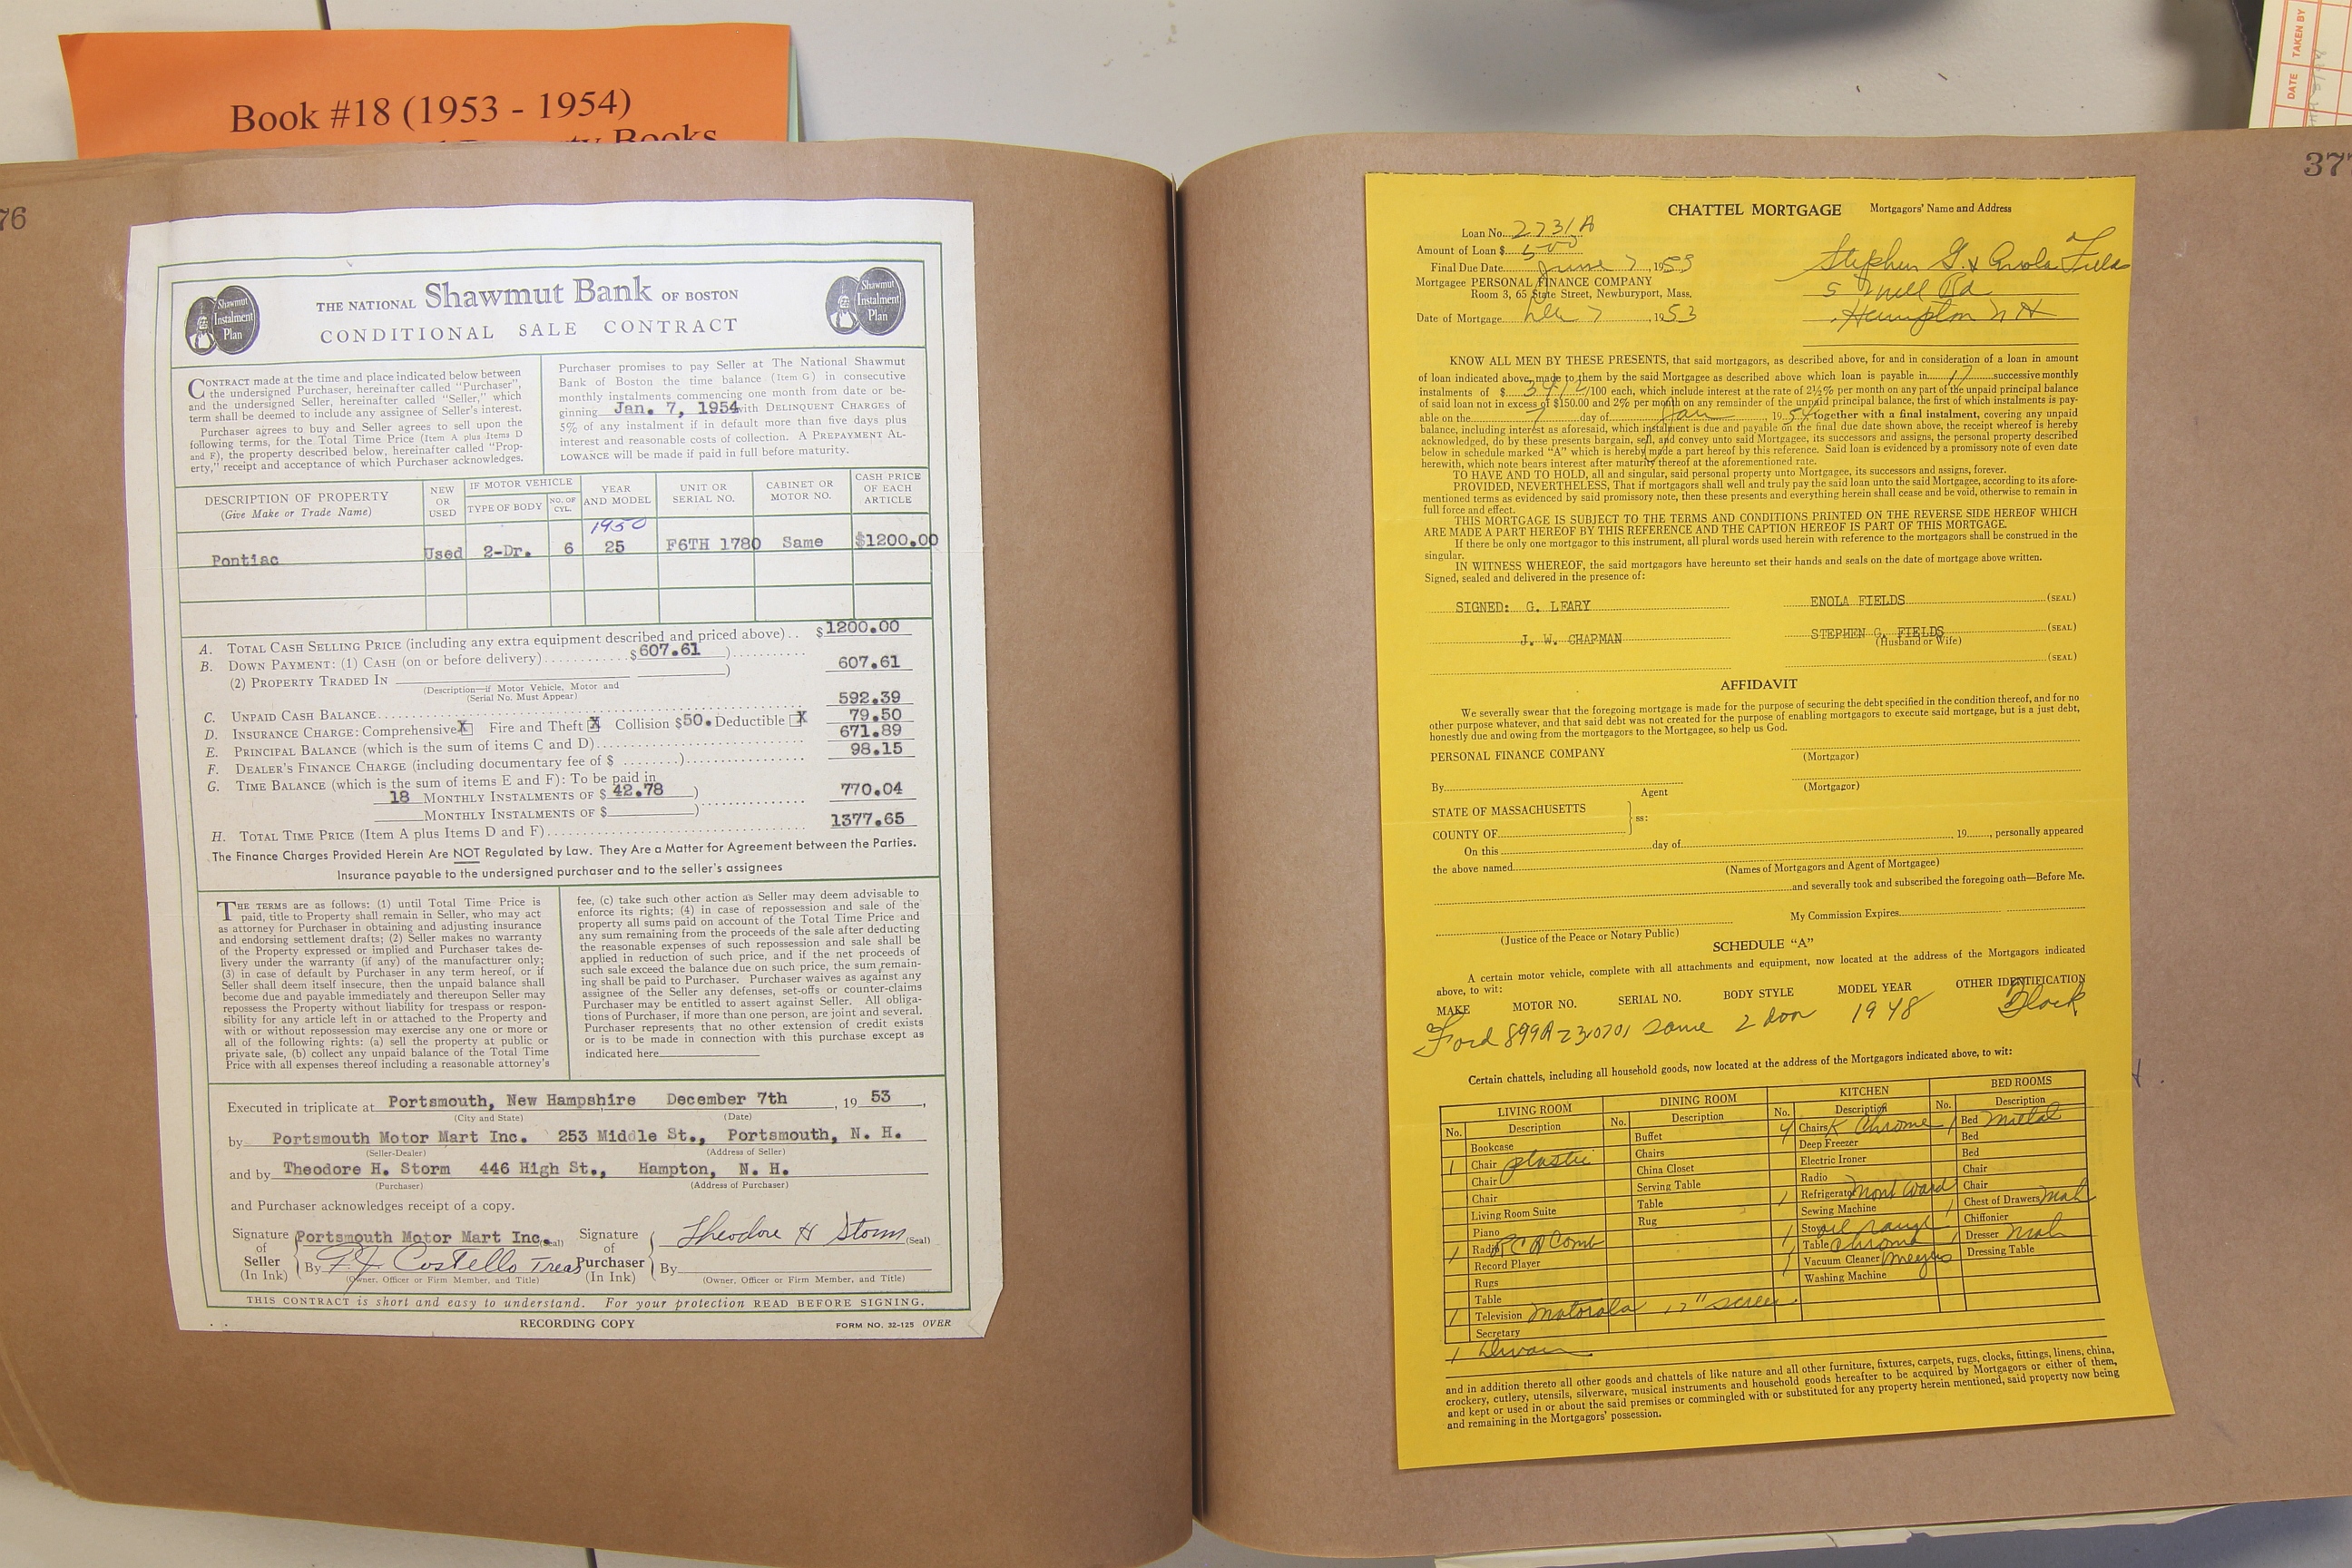 Book #18 (1953 - 1954)
Books
DATE TAKEN BY
76
Shawmut Instalment Plan
THE NATIONAL Shawmut Bank OF BOSTON
CONDITIONAL SALE CONTRACT
Shawmut Instalment Plan
CONTRACT made at the time and place indicated below between
the undersigned Purchaser, hereinafter called "Purchaser",
and the undersigned Seller, hereinafter called "Seller," which
term shall be deemed to include any assignee of Seller's interest.
Purchaser agrees to buy and Seller agrees to sell upon the
following terms, for the Total Time Price (Item A plus Items D
and F), the property described below, hereinafter called "Prop-
erty," receipt and acceptance of which Purchaser acknowledges.
Purchaser promises to pay Seller at The National Shawmut
Bank of Boston the time balance (Item G) in consecutive
monthly instalments commencing one month from date or be-
ginning Jan. 7, 1954 with DELINQUENT CHARGES of
5% of any instalment if in default more than five days plus
interest and reasonable costs of collection. A PREPAYMENT AL-
LOWANCE will be made if paid in full before maturity.
DESCRIPTION OF PROPERTY (Give Make or Trade Name) NEW OR USED IF MOTOR VEHICLE TYPE OF BODY NO. OF CYL. YEAR AND MODEL UNIT OR SERIAL NO. CABINET OR MOTOR NO. CASH PRICE OF EACH ARTICLE
1950
Pontiac Used 2-Dr. 6 25 F6TH 1780 Same $1200.00
A. TOTAL CASH SELLING PRICE (including any extra equipment described and priced above).. $1200.00
B. DOWN PAYMENT: (1) CASH (on or before delivery) $607.61 )
(2) PROPERTY TRADED IN ) 607.61
(Description—if Motor Vehicle, Motor and
(Serial No. Must Appear)
C. UNPAID CASH BALANCE 592.39
D. INSURANCE CHARGE: Comprehensive X Fire and Theft X Collision $50. Deductible X 79.50
E. PRINCIPAL BALANCE (which is the sum of items C and D) 671.89
F. DEALER'S FINANCE CHARGE (including documentary fee of $ ........) 98.15
G. TIME BALANCE (which is the sum of items E and F): To be paid in
18 MONTHLY INSTALMENTS OF $ 42.78 ) 770.04
MONTHLY INSTALMENTS OF $ )
H. TOTAL TIME PRICE (Item A plus Items D and F) 1377.65
The Finance Charges Provided Herein Are NOT Regulated by Law. They Are a Matter for Agreement between the Parties.
Insurance payable to the undersigned purchaser and to the seller's assignees
THE TERMS are as follows: (1) until Total Time Price is
paid, title to Property shall remain in Seller, who may act
as attorney for Purchaser in obtaining and adjusting insurance
and endorsing settlement drafts; (2) Seller makes no warranty
of the Property expressed or implied and Purchaser takes de-
livery under the warranty (if any) of the manufacturer only;
(3) in case of default by Purchaser in any term hereof, or if
Seller shall deem itself insecure, then the unpaid balance shall
become due and payable immediately and thereupon Seller may
repossess the Property without liability for trespass or respon-
sibility for any article left in or attached to the Property and
with or without repossession may exercise any one or more or
all of the following rights: (a) sell the property at public or
private sale, (b) collect any unpaid balance of the Total Time
Price with all expenses thereof including a reasonable attorney's
fee, (c) take such other action as Seller may deem advisable to
enforce its rights; (4) in case of repossession and sale of the
property all sums paid on account of the Total Time Price and
any sum remaining from the proceeds of the sale after deducting
the reasonable expenses of such repossession and sale shall be
applied in reduction of such price, and if the net proceeds of
such sale exceed the balance due on such price, the sum remain-
ing shall be paid to Purchaser. Purchaser waives as against any
assignee of the Seller any defenses, set-offs or counter-claims
Purchaser may be entitled to assert against Seller. All obliga-
tions of Purchaser, if more than one person, are joint and several.
Purchaser represents that no other extension of credit exists
or is to be made in connection with this purchase except as
indicated here
Executed in triplicate at Portsmouth, New Hampshire December 7th, 19 53,
(City and State) (Date)
by Portsmouth Motor Mart Inc. 253 Middle St., Portsmouth, N. H.
(Seller-Dealer) (Address of Seller)
and by Theodore H. Storm 446 High St., Hampton, N. H.
(Purchaser) (Address of Purchaser)
and Purchaser acknowledges receipt of a copy.
Signature of Seller (In Ink) Portsmouth Motor Mart Inc. (Seal)
By F J Costello Treas
(Owner, Officer or Firm Member, and Title)
Signature of Purchaser (In Ink) Theodore H Storm (Seal)
By
(Owner, Officer or Firm Member, and Title)
THIS CONTRACT is short and easy to understand. For your protection READ BEFORE SIGNING.
RECORDING COPY FORM NO. 32-125 OVER
377
CHATTEL MORTGAGE Mortgagors' Name and Address
Loan No. 2731A
Amount of Loan $ 500
Final Due Date June 7, 1955
Mortgagee PERSONAL FINANCE COMPANY
Room 3, 65 State Street, Newburyport, Mass.
Date of Mortgage Dec 7, 1953
Stephen G. & Enola Fields
5 Mill Rd
Hampton N H
KNOW ALL MEN BY THESE PRESENTS, that said mortgagors, as described above, for and in consideration of a loan in amount
of loan indicated above, made to them by the said Mortgagee as described above which loan is payable in 17 successive monthly
instalments of $ 34 12/100 each, which include interest at the rate of 2½% per month on any part of the unpaid principal balance
of said loan not in excess of $150.00 and 2% per month on any remainder of the unpaid principal balance, the first of which instalments is pay-
able on the 7 day of Jan 1954 together with a final instalment, covering any unpaid
balance, including interest as aforesaid, which instalment is due and payable on the final due date shown above, the receipt whereof is hereby
acknowledged, do by these presents bargain, sell, and convey unto said Mortgagee, its successors and assigns, the personal property described
below in schedule marked "A" which is hereby made a part hereof by this reference. Said loan is evidenced by a promissory note of even date
herewith, which note bears interest after maturity thereof at the aforementioned rate.
TO HAVE AND TO HOLD, all and singular, said personal property unto Mortgagee, its successors and assigns, forever.
PROVIDED, NEVERTHELESS, That if mortgagors shall well and truly pay the said loan unto the said Mortgagee, according to its afore-
mentioned terms as evidenced by said promissory note, then these presents and everything herein shall cease and be void, otherwise to remain in
full force and effect.
THIS MORTGAGE IS SUBJECT TO THE TERMS AND CONDITIONS PRINTED ON THE REVERSE SIDE HEREOF WHICH
ARE MADE A PART HEREOF BY THIS REFERENCE AND THE CAPTION HEREOF IS PART OF THIS MORTGAGE.
If there be only one mortgagor to this instrument, all plural words used herein with reference to the mortgagors shall be construed in the
singular.
IN WITNESS WHEREOF, the said mortgagors have hereunto set their hands and seals on the date of mortgage above written.
Signed, sealed and delivered in the presence of:
SIGNED: G. LEARY ENOLA FIELDS (SEAL)
J. W. CHAPMAN STEPHEN G. FIELDS (SEAL)
(Husband or Wife)
(SEAL)
AFFIDAVIT
We severally swear that the foregoing mortgage is made for the purpose of securing the debt specified in the condition thereof, and for no
other purpose whatever, and that said debt was not created for the purpose of enabling mortgagors to execute said mortgage, but is a just debt,
honestly due and owing from the mortgagors to the Mortgagee, so help us God.
PERSONAL FINANCE COMPANY
(Mortgagor)
By
Agent (Mortgagor)
STATE OF MASSACHUSETTS
COUNTY OF ss:
On this day of , 19 , personally appeared
the above named
(Names of Mortgagors and Agent of Mortgagee)
and severally took and subscribed the foregoing oath—Before Me.
My Commission Expires
(Justice of the Peace or Notary Public)
SCHEDULE "A"
A certain motor vehicle, complete with all attachments and equipment, now located at the address of the Mortgagors indicated
above, to wit:
MAKE MOTOR NO. SERIAL NO. BODY STYLE MODEL YEAR OTHER IDENTIFICATION
Ford 899A230701 same 2 door 1948 Black
Certain chattels, including all household goods, now located at the address of the Mortgagors indicated above, to wit:
LIVING ROOM DINING ROOM KITCHEN BED ROOMS
No. Description No. Description No. Description No. Description
Bookcase Buffet 4 Chairs K Chrome 1 Bed Metal
1 Chair plastic Chairs Deep Freezer Bed
Chair China Closet Electric Ironer Bed
Chair Serving Table Radio Chair
Living Room Suite Table 1 Refrigerator Mont Ward Chair
Piano Rug Sewing Machine 1 Chest of Drawers Mah
1 Radio RCA Comb 1 Stove oil range Chiffonier
Record Player 1 Table Chrome 1 Dresser Mah
Rugs 1 Vacuum Cleaner Dressing Table
Table Washing Machine
1 Television Motorola 17" screen
Secretary
1 Divan
and in addition thereto all other goods and chattels of like nature and all other furniture, fixtures, carpets, rugs, clocks, fittings, linens, china,
crockery, cutlery, utensils, silverware, musical instruments and household goods hereafter to be acquired by Mortgagors or either of them,
and kept or used in or about the said premises or commingled with or substituted for any property herein mentioned, said property now being
and remaining in the Mortgagors' possession.